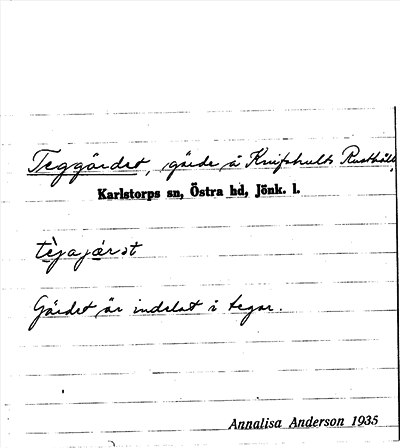 Teggärdet, gärde å Knifshults Rusthåll,
Karlstorps sn, Östra hd, Jönk. l.
tèjajæ̀rət
Gärdet är indelat i tegar.
Annalisa Anderson 1935